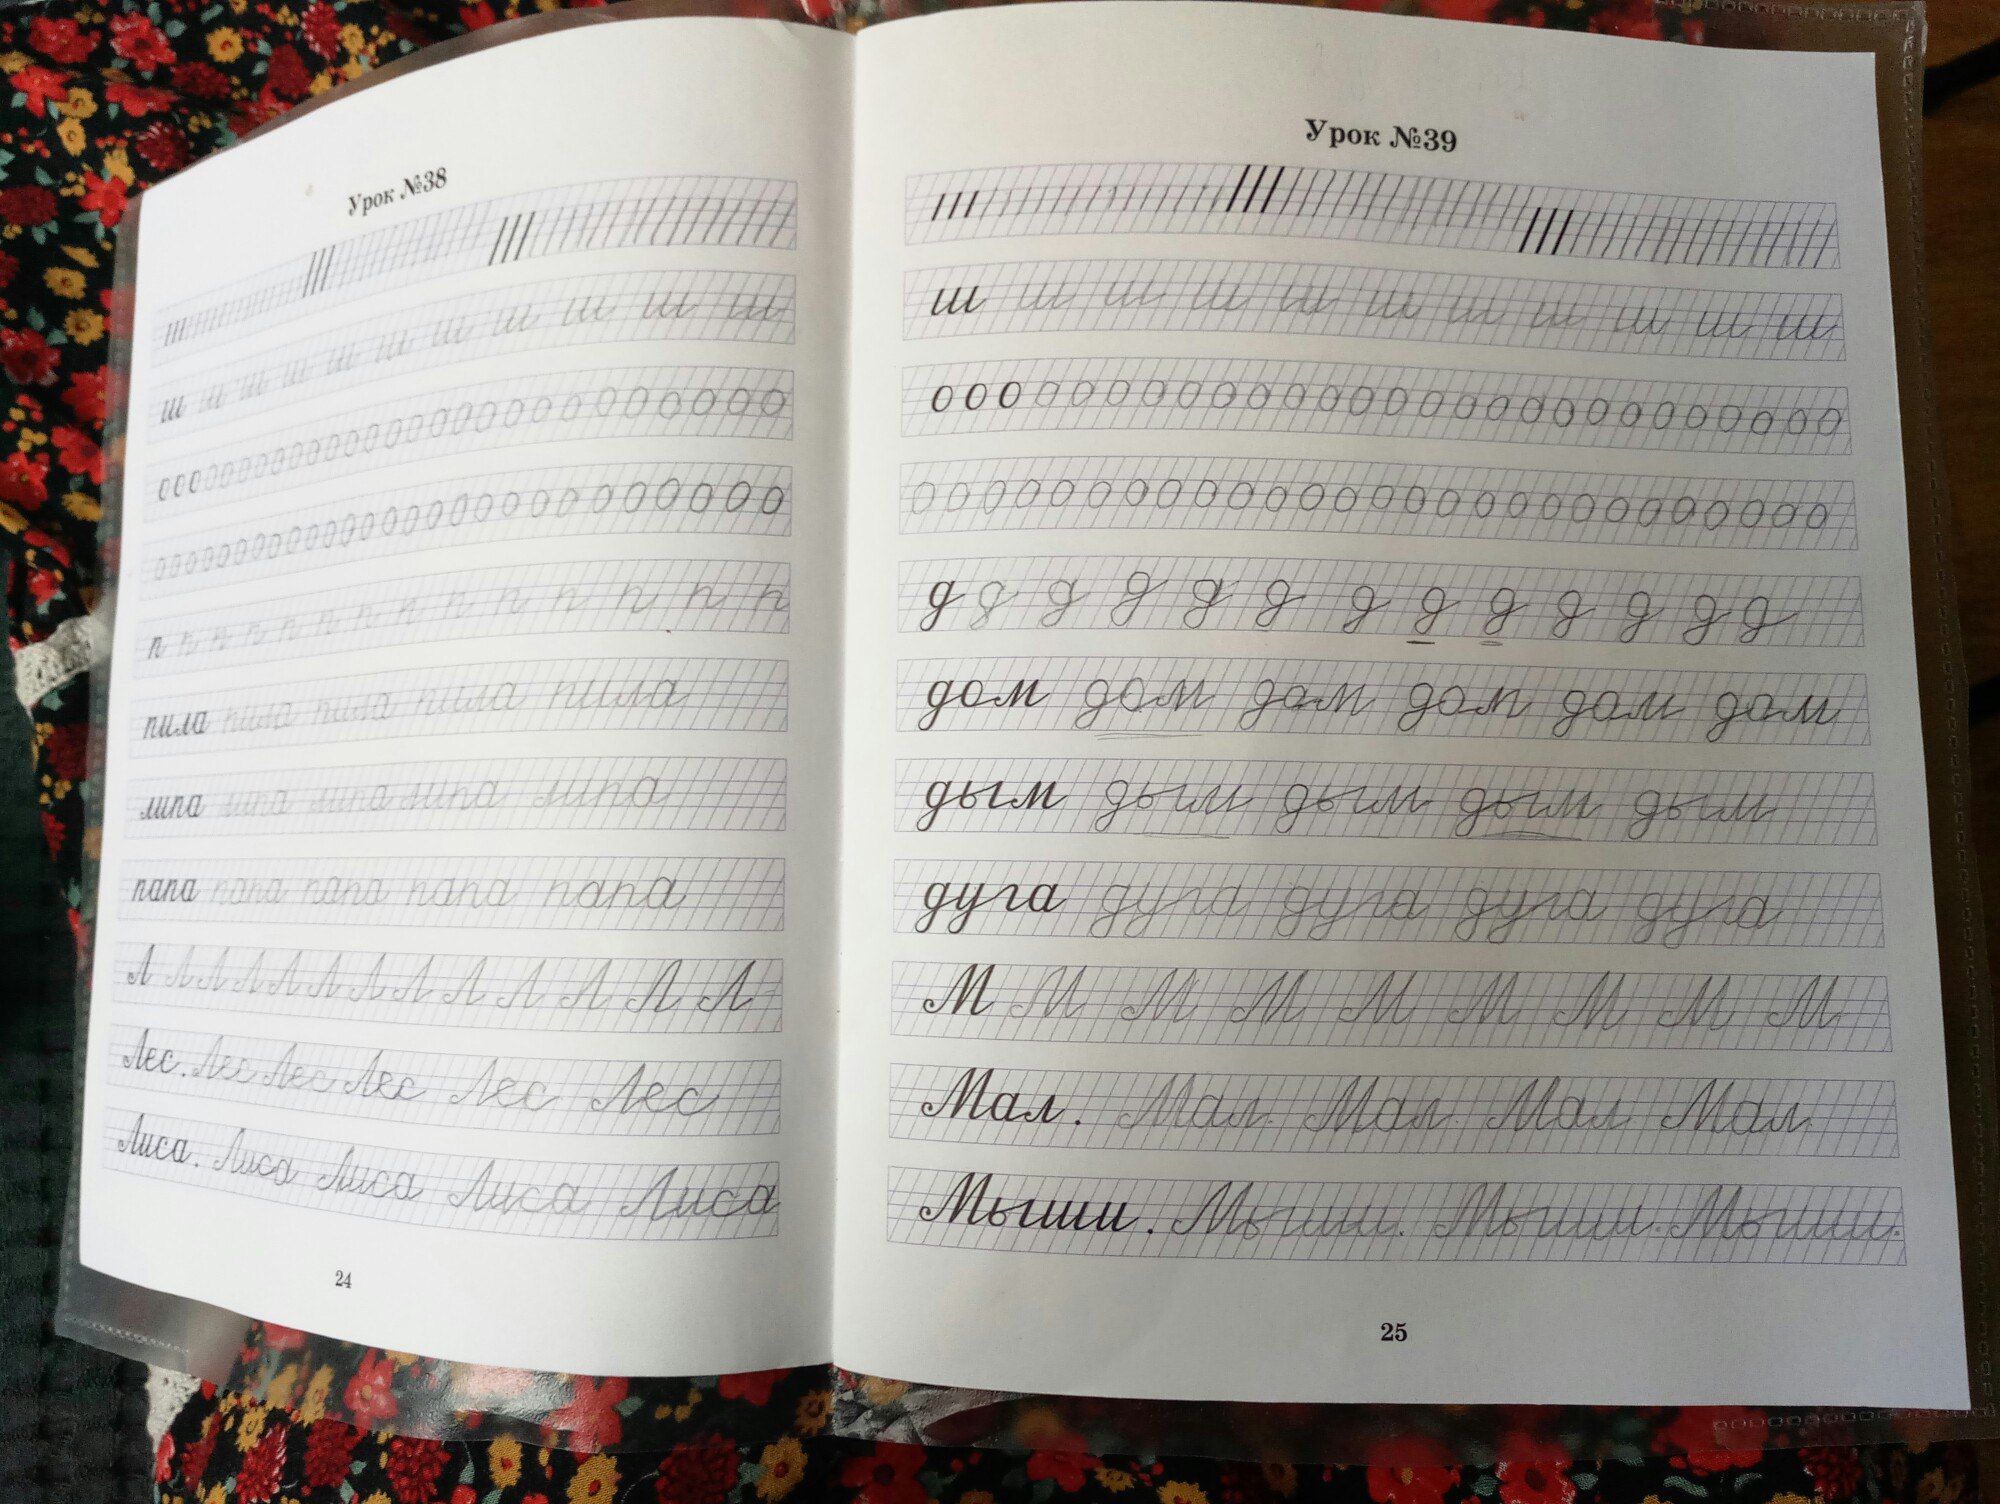 Урок №38
ш ш ш ш ш ш ш ш ш ш ш
о о о о о о о о о о о о о о о о о о о о о о о о
о о о о о о о о о о о о о о о о о о о о о о о о
п п п п п п п п п п п п п
пила пила пила пила пила
липа липа липа липа липа
папа папа папа папа папа
Л Л Л Л Л Л Л Л Л Л Л Л Л
Лес. Лес Лес Лес Лес Лес
Лиса. Лиса Лиса Лиса Лиса
24
Урок №39
ш ш ш ш ш ш ш ш ш ш ш
о о о о о о о о о о о о о о о о о о о о о о о о о о
о о о о о о о о о о о о о о о о о о о о о о о о о о о
д д д д д д д д д д д д д
дом дом дом дом дом дом
дым дым дым дым дым
дуга дуга дуга дуга дуга
М М М М М М М М М
Мал. Мал. Мал. Мал. Мал.
Мыши. Мыши. Мыши. Мыши.
25